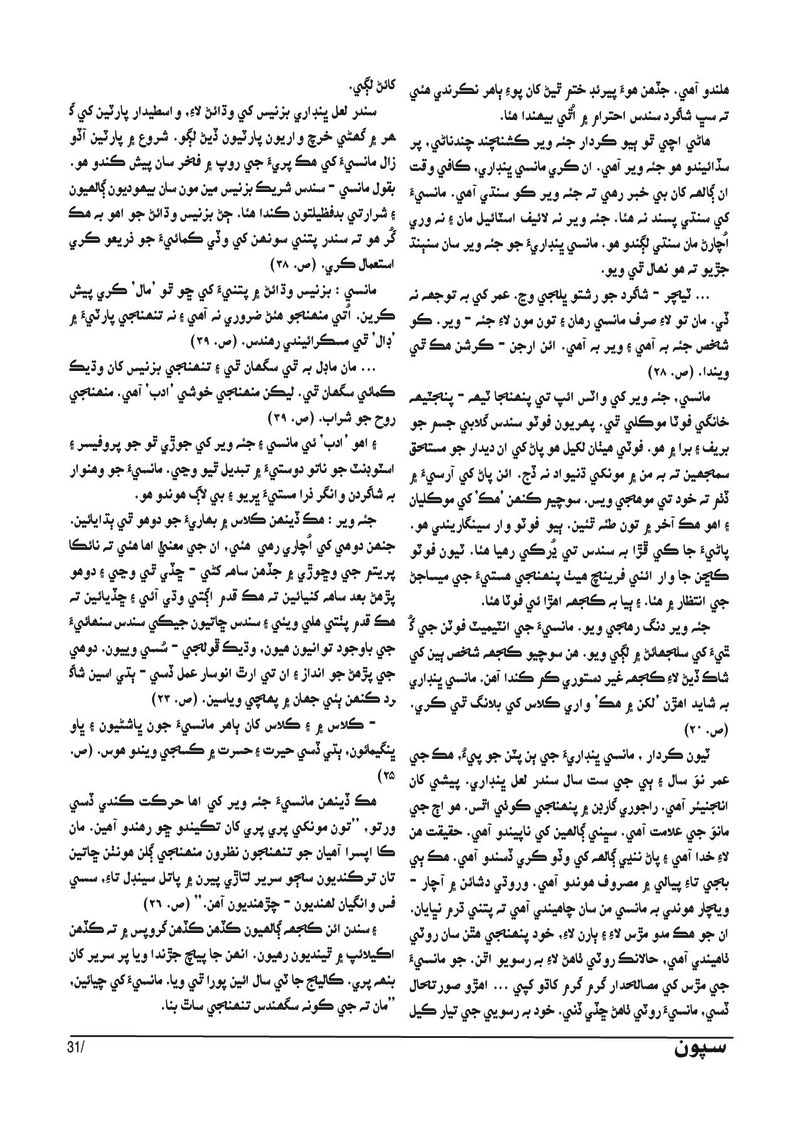 هلندو آهي. جڏهن هوءَ پيرئڊ ختم ٿيڻ کان پوءِ ٻاهر نڪرندي هئي
ته سڀ شاگرد سندس احترام ۾ اُٿي بيهندا هئا.
هاڻي اچي ٿو ٻيو ڪردار جئه وير ڪشنچند چندناڻي، پر
سڏائيندو هو جئه وير آهي. ان ڪري مانسي ڀنڊاري، ڪافي وقت
ان ڳالهه کان بي خبر رهي ته جئه وير ڪو سنڌي آهي. مانسيءَ
کي سنڌي پسند نه هئا. جئه وير نه لائيف اسٽائيل مان ۽ نه وري
اُچارڻ مان سنڌي لڳندو هو. مانسي ڀنڊاريءَ جو جئه وير سان سنٻنڌ
جڙيو ته هو نهال ٿي ويو.
... ٽيچر - شاگرد جو رشتو ڀلجي وڃ. عمر کي به توجهہ نه
ڏي. مان تو لاءِ صرف مانسي رهان ۽ تون مون لاءِ جئه - وير. ڪو
شخص جئه به آهي ۽ وير به آهي. ائن ارجن - ڪرشن هڪ ٿي
ويندا. (ص. ٢٨)
مانسي، جئه وير کي واٽس ائپ تي پنهنجا ٽيهه - پنجٽيهه
خانگي فوٽا موڪلي ٿي. پهريون فوٽو سندس گلابي جسم جو
بريف ۽ برا ۾ هو. فوٽي هيٺان لکيل هو پاڻ کي ان ديدار جو مستحق
سمجهين ته به من ۾ مونکي ڌنيواد نه ڏج. ائن پاڻ کي آرسيءَ ۾
ڏٺم ته خود تي موهجي ويس. سوچيم ڪنهن 'هڪ' کي موڪليان
۽ اهو هڪ آخر ۾ تون طئه ٿئين. ٻيو فوٽو وار سينگاريندي هو.
پاڻيءَ جا ڪي ڦڙا به سندس تي ٽرڪي رهيا هئا. ٽيون فوٽو
ڪڇن جا وار ائني فرينچ هيٺ پنهنجي هستيءَ جي ميساجڻ
جي انتظار ۾ هئا. ۽ ٻيا به ڪجهه اهڙا ئي فوٽا هئا.
جئه وير دنگ رهجي ويو. مانسيءَ جي انٽيميٽ فوٽن جي ڳُ
ٿيءَ کي سلجهائڻ ۾ لڳي ويو. هن سوچيو ڪجهه شخص ٻين کي
شاڪ ڏيڻ لاءِ ڪجهه غير دستوري ڪم ڪندا آهن. مانسي ڀنڊاري
به شايد اهڙن 'لکن ۾ هڪ' واري ڪلاس کي بلانگ ٿي ڪري.
(ص. ٢٠)
ٽيون ڪردار ، مانسي ڀنڊاريءَ جي ٻن پٽن جو پيءُ، هڪ جي
عمر نوَ سال ۽ ٻي جي ست سال سندر لعل ڀنڊاري. پيشي کان
انجنيئر آهي. راجوري گارڊن ۾ پنهنجي ڪوٺي اٿس. هو اڄ جي
مانوَ جي علامت آهي. سڀني ڳالهين کي ناپيندو آهي. حقيقت هن
لاءِ خدا آهي ۽ پاڻ ننڍي ڳالهه کي وڏو ڪري ڏسندو آهي. هڪ ٻي
بجي تاءِ پيالي ۾ مصروف هوندو آهي. وروڌي دشائن ۾ آچار -
ويچار هوندي به مانسي من سان چاهيندي آهي ته پتني ڌرم نڀايان.
ان جو هڪ مدو مڙس لاءِ ۽ ٻارن لاءِ، خود پنهنجي هٿن سان روٽي
ٺاهيندي آهي، حالانڪ روٽي ٺاهڻ لاءِ به رسويو اٿن. جو مانسيءَ
جي مڙس کي مصالحدار گرم گرم کاڌو کپي ... اهڙو صورتحال
ڏسي، مانسيءَ روٽي ٺاهڻ ڇڏي ڏني. خود به رسويي جي تيار ڪيل
کائڻ لڳي.
سندر لعل ڀنڊاري بزنيس کي وڌائڻ لاءِ، واسطيدار پارٽين کي گ
هر ۾ گهڻي خرچ واريون پارٽيون ڏيڻ لڳو. شروع ۾ پارٽين آڏو
زال مانسيءَ کي هڪ پريءَ جي روپ ۾ فخر سان پيش ڪندو هو.
بقول مانسي - سندس شريڪ بزنيس مين مون سان بيهوديون ڳالهيون
۽ شرارتي بدفظيلتون ڪندا هئا. ڄڻ بزنيس وڌائڻ جو اهو به هڪ
گُر هو ته سندر پتني سونهن کي وڏي ڪمائيءَ جو ذريعو ڪري
استعمال ڪري. (ص. ٣٨)
مانسي : بزنيس وڌائڻ ۾ پتنيءَ کي ڇو ٿو 'مال' ڪري پيش
ڪرين. اُتي منهنجو هئڻ ضروري نه آهي ۽ نه تنهنجي پارٽيءَ ۾
'ڊال' ٿي مسڪرائيندي رهندس. (ص. ٣٩)
... مان ماڊل به ٿي سگهان ٿي ۽ تنهنجي بزنيس کان وڌيڪ
ڪمائي سگهان ٿي. ليڪن منهنجي خوشي 'ادب' آهي. منهنجي
روح جو شراب. (ص. ٣٩)
۽ اهو 'ادب' ئي مانسي ۽ جئه وير کي جوڙي ٿو جو پروفيسر ۽
اسٽوڊنٽ جو ناتو دوستيءَ ۾ تبديل ٿيو وڃي. مانسيءَ جو وهنوار
به شاگردن وانگر ذرا مستيءَ ڀريو ۽ بي لاڳ هوندو هو.
جئه وير : هڪ ڏينهن ڪلاس ۾ بهاريءَ جو دوهو ٿي ٻڌايائين.
جنهن دوهي کي اُچاري رهي هئي، ان جي معنيٰ اها هئي ته نائڪا
پريتم جي وڇوڙي ۾ جڏهن ساهه کڻي - ڇڏي ٿي وڃي ۽ دوهو
پڙهڻ بعد ساهه کنيائين ته هڪ قدم اڳتي وڌي آئي ۽ ڇڏيائين ته
هڪ قدم پٺتي هلي ويئي ۽ سندس ڇاتيون جيڪي سندس سنهائيءَ
جي باوجود توانيون هيون، وڌيڪ ڦولجي - سُسي وييون. دوهي
جي پڙهڻ جو انداز ۽ ان تي ارٿ انوسار عمل ڏسي - ٻڌي اسين شاگ
رد ڪنهن ٻئي جهان ۾ پهاچي وياسين. (ص. ٢٣)
- ڪلاس ۾ ۽ ڪلاس کان ٻاهر مانسيءَ جون ڀاشڻيون ۽ ڀاو
ڀنگيمائون، ٻڌي ڏسي حيرت ۽ حسرت ۾ کسجي ويندو هوس. (ص.
٢٥)
هڪ ڏينهن مانسيءَ جئه وير کي اها حرڪت ڪندي ڏسي
ورتو، ”تون مونکي پري پري کان تڪيندو ڇو رهندو آهين. مان
ڪا اپسرا آهيان جو تنهنجون نظرون منهنجي ڳلن هونٺن ڇاتين
تان ترڪنديون سڄو سرير لتاڙي پيرن ۾ پاتل سينڊل تاءِ، سسي
فس وانگيان لهنديون - چڙهنديون آهن.“ (ص. ٢٦)
۽ سندن ائن ڪجهه ڳالهيون ڪڏهن ڪڏهن گروپس ۾ ته ڪڏهن
اڪيلائپ ۾ ٿينديون رهيون. انهن جا پيچ جڙندا ويا پر سرير کان
بنهه پري. ڪاليج جا ٽي سال ائين پورا ٿي ويا. مانسيءَ کي چيائين،
”مان ته جي ڪونه سگهندس تنهنجي ساٿ بنا.
31/
سپون